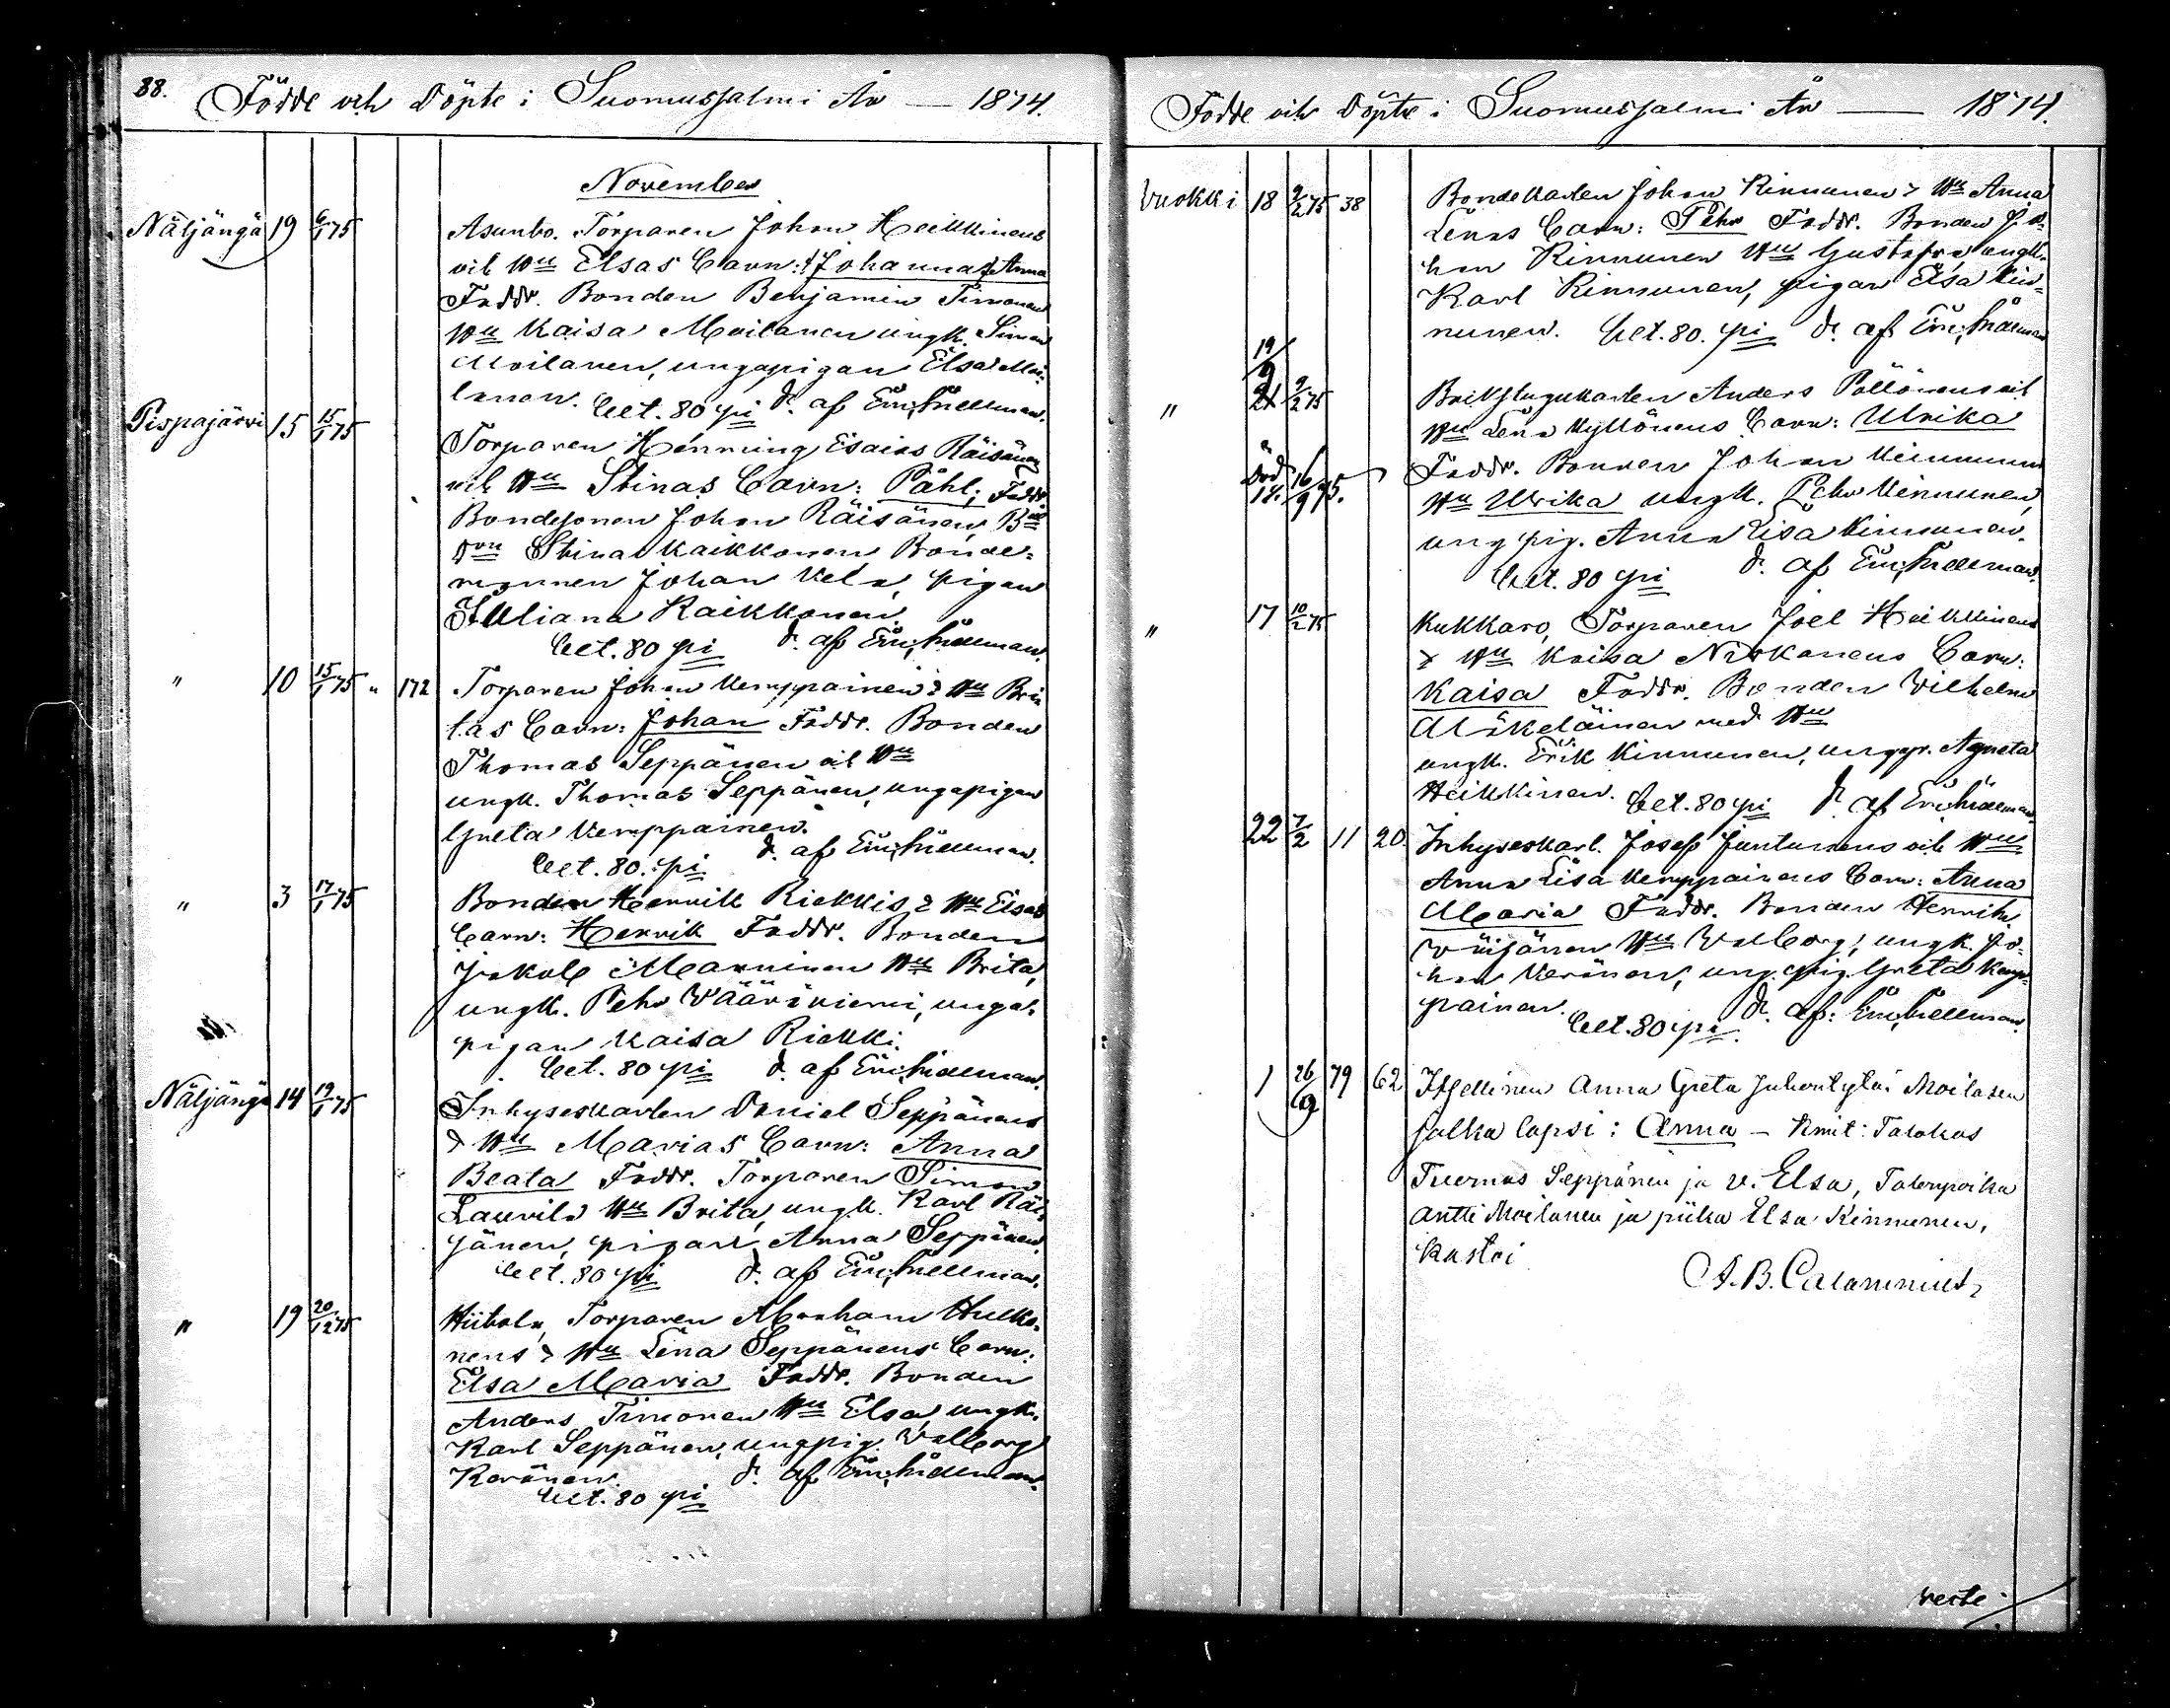 88. Födde och Döpte i Suomussalmi År — 1874.
November
Näljängä 19 6/1 75 Asunbo. Torparen Johan Heikkinens
och Hu Elsas Barn: Johanna Anna
Faddr. Bonden Benjamin Timonen
Hu Kaisa Moilanen ungk. Simon
Moilanen, ungapigan Elsa Moi-
lanen. Bet. 80 pi d. af
Pispajärvi 15 15/1 75 Torparen Henning Esaias Räisänen
och Hu Stinas Barn: Påhl; Faddr
Bondesonen Johan Räisänen,
Stina Kaikkonen Bonde-
Johan Kela, pigan
Juliana Kaikkonen.
Bet. 80 pi d. af
" 10 15/1 75 " 172 Torparen Johan Kemppainen & Hu Bri
tas Barn: Johan Faddr. Bonden
Thomas Seppänen och Hu
ungk. Thomas Seppänen, ungapigan
Greta Kemppainen.
Bet. 80. pi d. af
" 3 17/1 75 Bonden Henrik Riekkis & Hu Elsas
Barn: Henrik Faddr. Bonden
Jakob Manninen Hu Brita,
ungk. Pehr Vääräniemi, unga-
pigan Kaisa Riekki.
Bet. 80 pi d. af
Näljängä 14 19/1 75 Inhyseskarlen Daniel Seppänens
& Hu Marias Barn: Anna
Beata Faddr. Torparen Simon
Laurila Hu Brita, ungk. Karl Räi-
sänen, pigan Anna Seppänen.
Bet. 80 pi d. af
" 19 20/12 75 Torparen Abraham Hulko-
nens & Hu Lena Seppänens Barn:
Elsa Maria Faddr. Bonden
Anders Timonen Hu Elsa, ungk.
Karl Seppänen, ungpig. Valborg
Keränen. d. af
Bet. 80 pi
Födde och Döpte i Suomussalmi År — 1874.
Vuokki 18 9/2 75 38 Bondekarlen Johan Kinnunen & Hu Anna
Lenas Barn: Pehr Faddr. Bonden Jo-
han Kinnunen Hu Gustafva, ungk.
Karl Kinnunen, pigan Elsa Kin-
nunen. Bet. 80. pi d. af
19/9
" 21 9/2 75 Anders Pöllönens och
Hu Lena Kyllönens Barn: Ulrika
Död 16/9 75. Faddr. Bonden Johan Kinnunen
Hu Ulrika ungk. Pehr Kinnunen,
ung pig. Anna Lisa Kinnunen.
Bet. 80 pi d. af
" 17 10/2 75 Kukkaro, Torparen Joel Heikkinens
& Hu Kaisa Niskanens Barn:
Kaisa Faddr. Bonden Vilhelm
Mikeläinen med Hu
ungk. Erik Kinnunen, ungp. Agneta
Heikkinen. Bet. 80 pi d. af
22 7/2 11 20. Inhyseskarl. Josef Juntunens och Hu
Anna Lisa Kemppainens Barn: Anna
Maria Faddr. Bonden Henrik
Väisänen Hu Valborg, ungk. Jo-
han Keränen, ung. pig. Greta Kemp-
painen. d. af:
Bet. 80 pi.
1 26/69 79 62 Itsellinen Anna Greta Juhontytär Moilasen
salka lapsi: Anna – Kmit: Talokas
Tuomas Seppänen ja v. Elsa, Talonpoika
Antti Moilanen ja piika Elsa Kinnunen,
Kastoi
A. B. Calamnius
verte